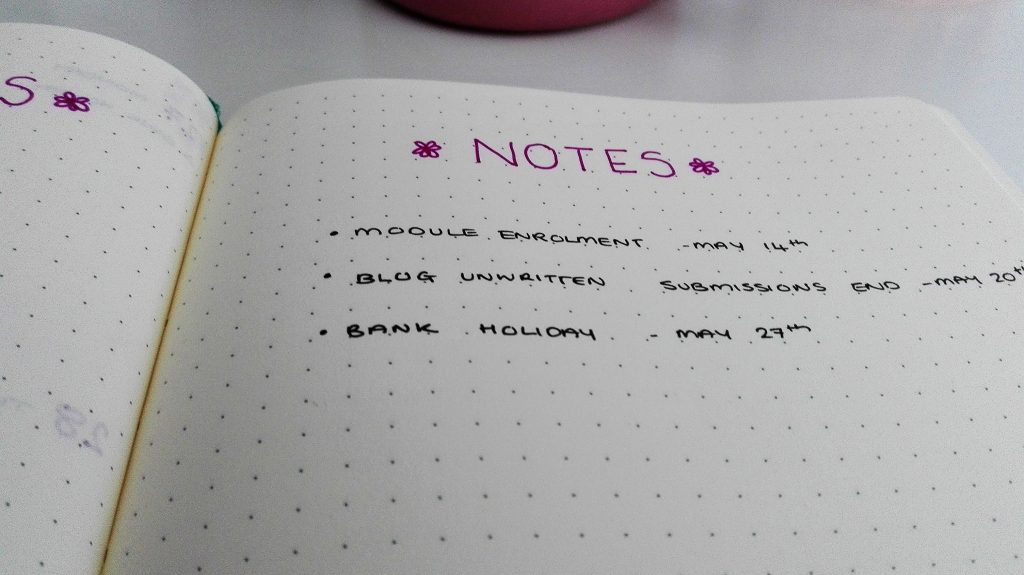 S
NOTES
• MODULE ENROLMENT - MAY 14th
• BLOG UNWRITTEN SUBMISSIONS END - MAY 20th
• BANK HOLIDAY - MAY 27th
28